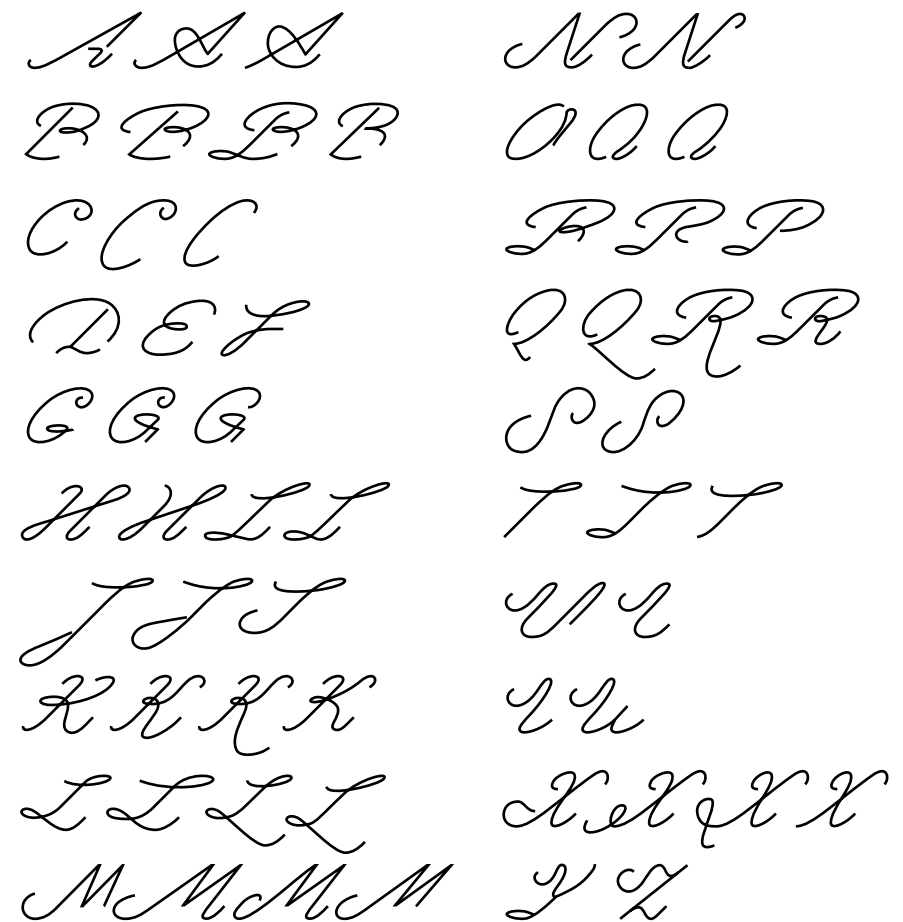 A A A
B B B B
C C C
D E F
G G G
H H L L
J J J
K K K K
L L L L
M M M M
N N
O O O
P P P
Q Q R R
S S
T T T
U U
U U
X X X X
Y Z